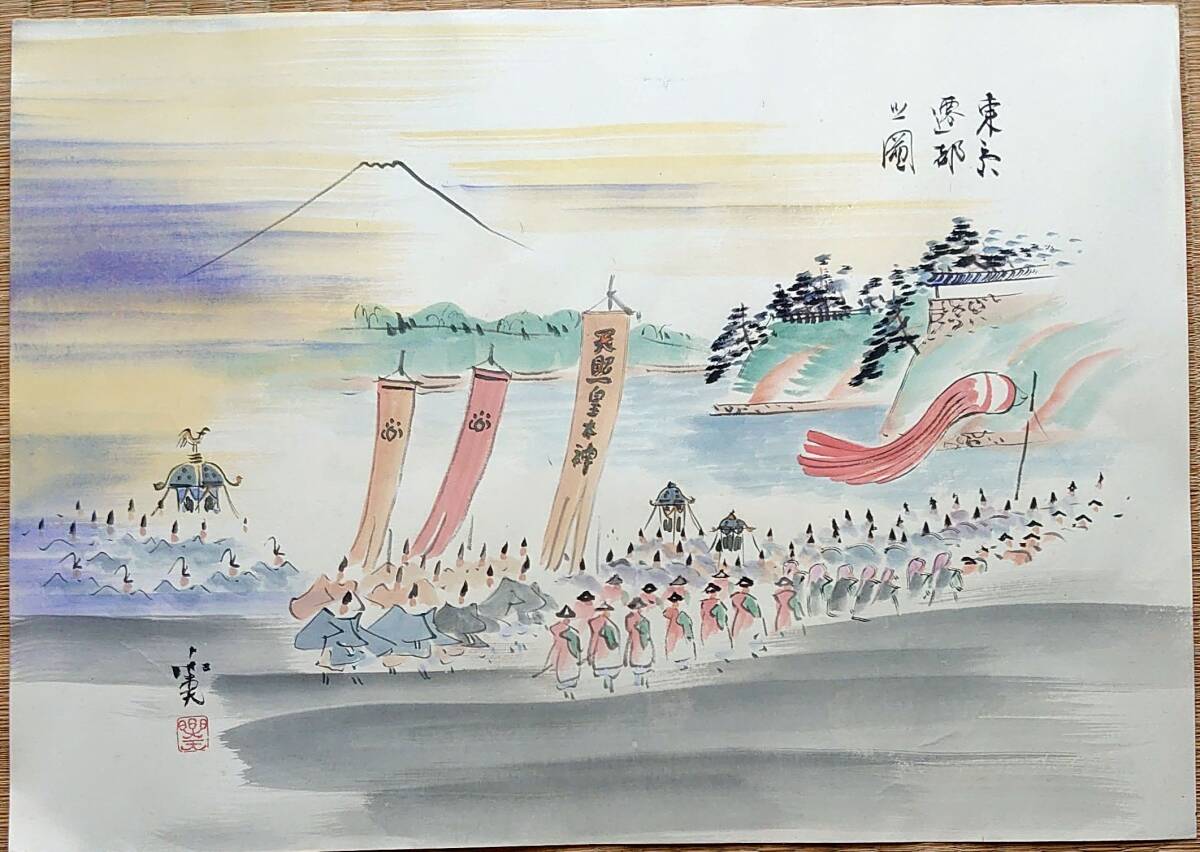 東京
遷都
之圖
天照皇太神